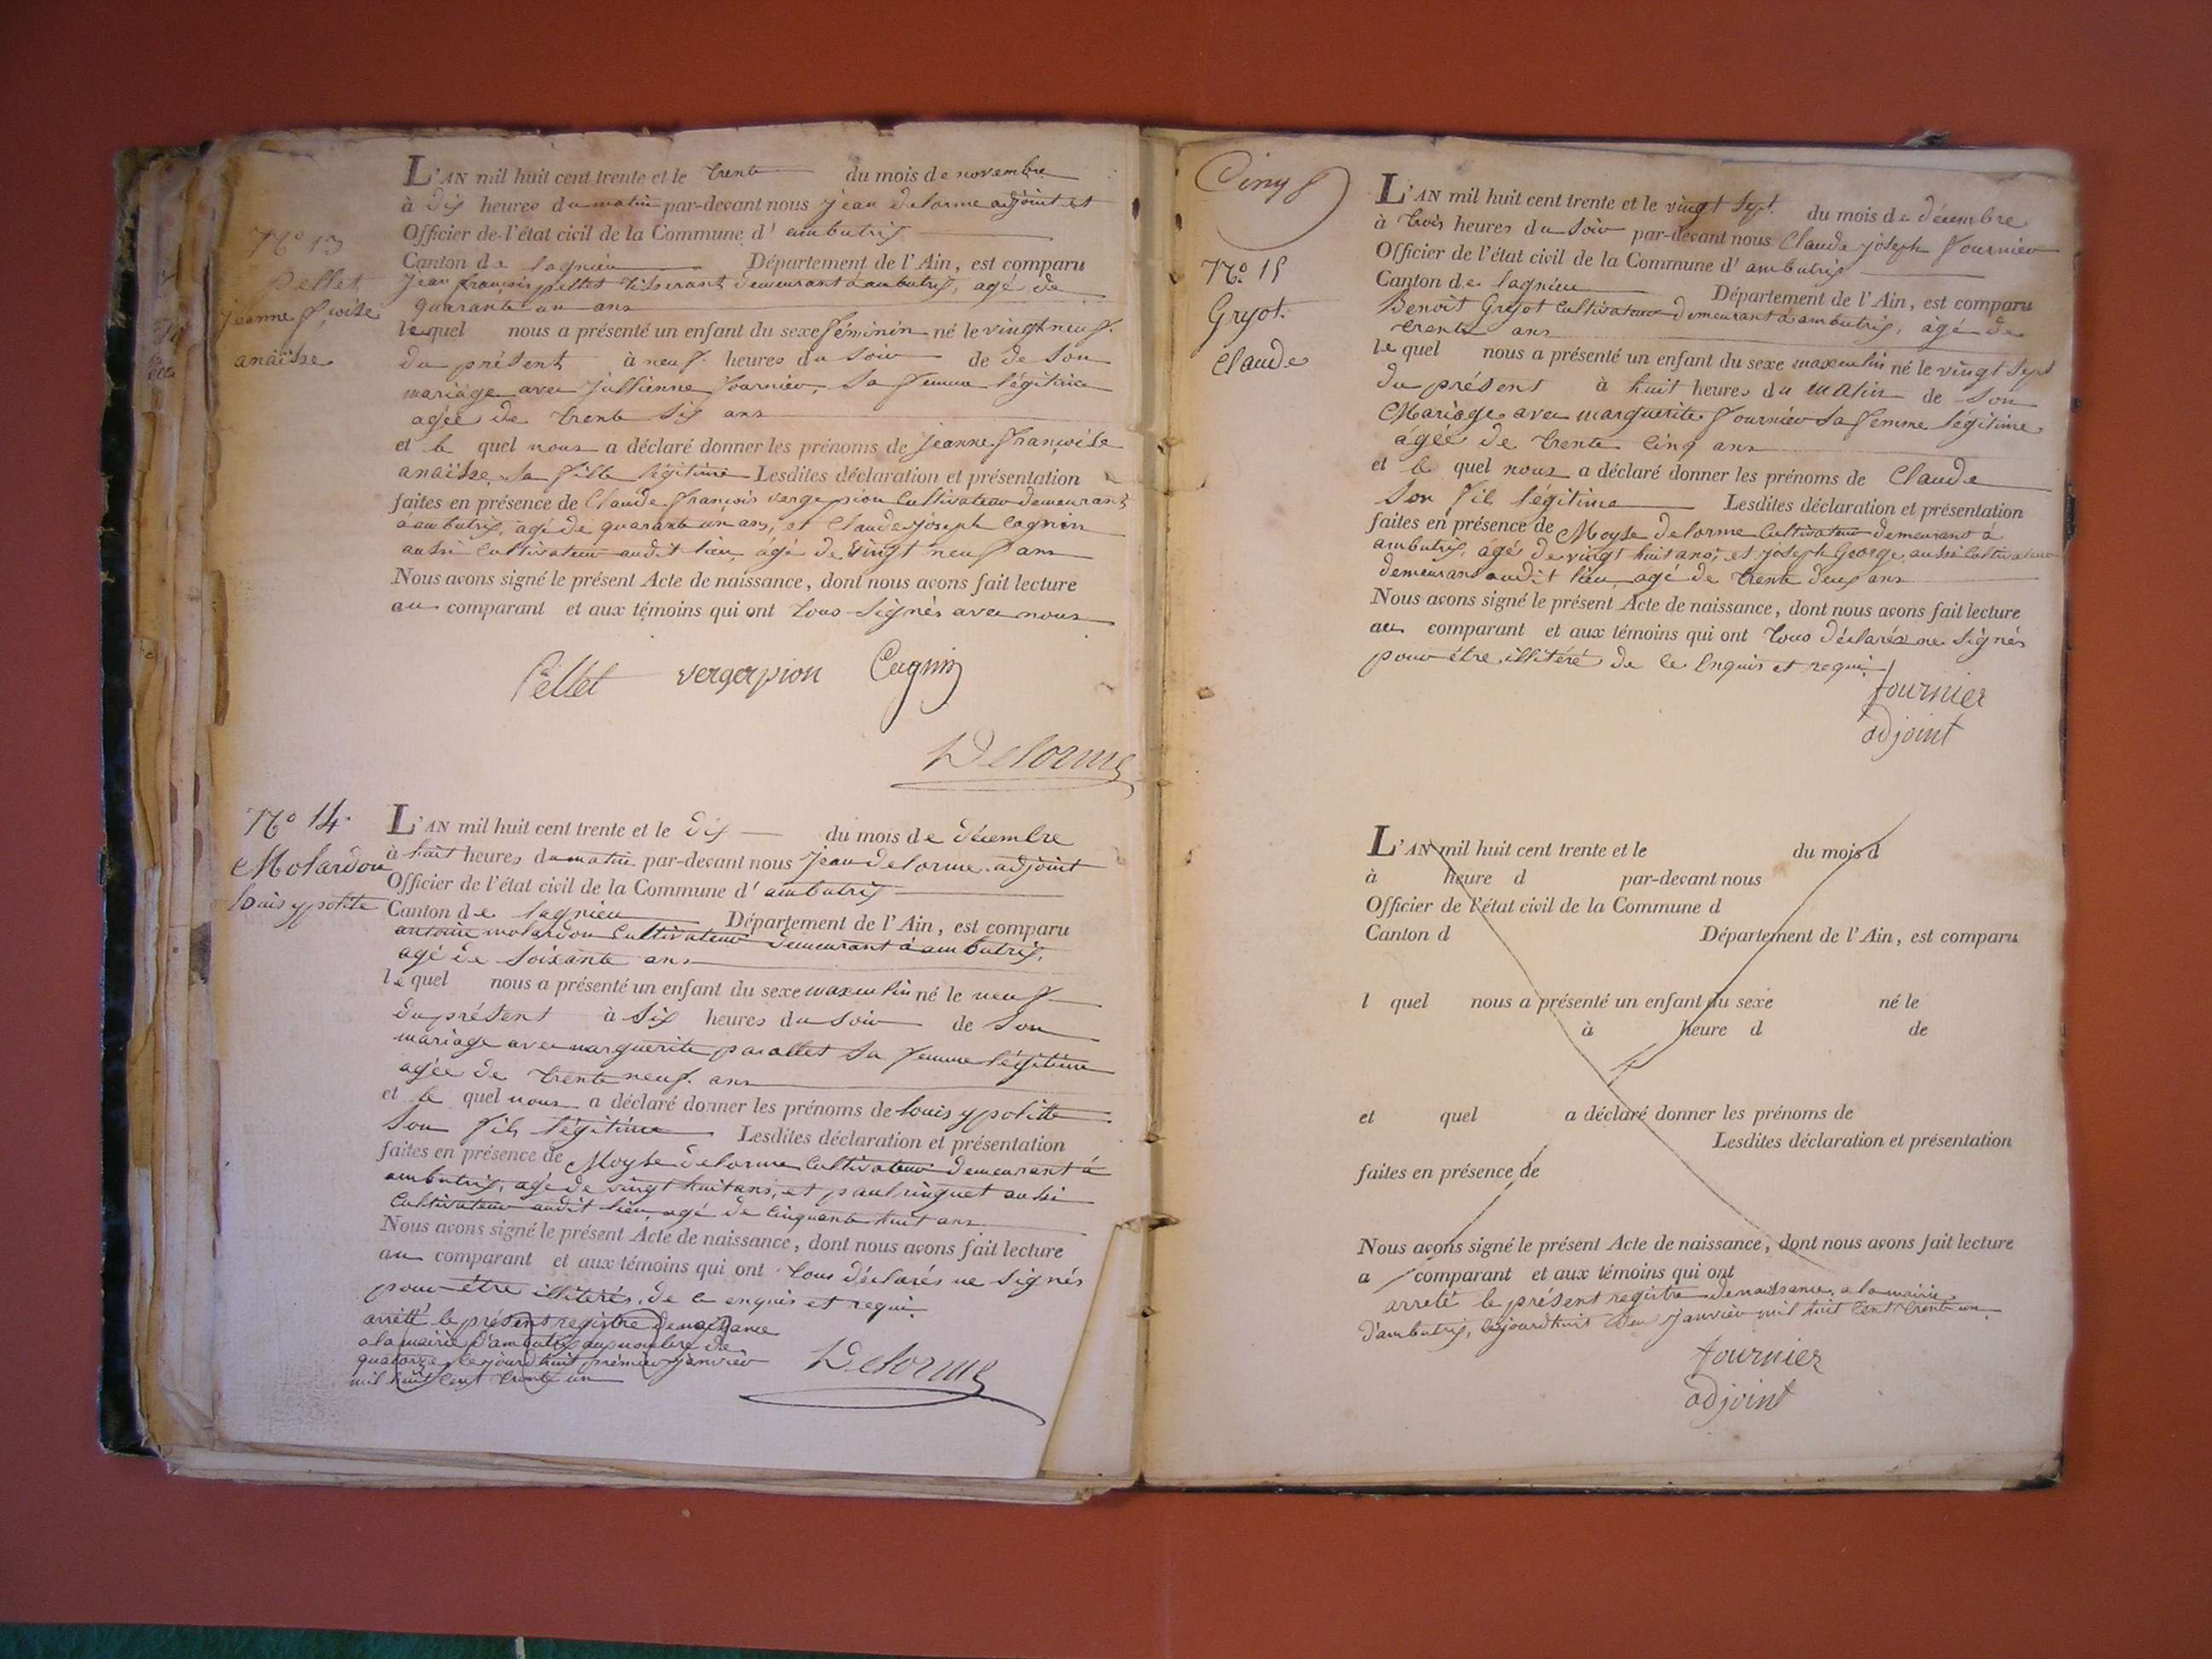 N.º 13
Pellet
jeanne f.çoise
anaïsse
L'AN mil huit cent trente et le trente du mois de novembre
à dix heures du matin par-devant nous jean delorme adjoint et
Officier de l'état civil de la Commune d'ambutrix
Canton de lagnieu Département de l'Ain, est comparu
jean françois pellet tisserant demeurant à ambutrix, agé de
quarante un ans
lequel nous a présenté un enfant du sexe féminin né le vingt neuf
du présent à neuf heures du soir de de son
mariage avec jullienne fournier, sa femme légitime
agée de trente six ans
et le quel nous a déclaré donner les prénoms de jeanne françoise
anaïsse, sa fille légitime Lesdites déclaration et présentation
faites en présence de Claude françois vergerpion Cultivateur demeurant
à ambutrix, agé de quarante un ans, et Claude joseph Cagnin
aussi Cultivateur audit lieu, agé de vingt neuf ans
Nous avons signé le présent Acte de naissance, dont nous avons fait lecture
au comparant et aux témoins qui ont tous signés avec nous
Pellet vergerpion Cagnin
Delorme
N.º 14
Molardon
louis ypolite
L'AN mil huit cent trente et le dix du mois de décembre
à huit heures du matin par-devant nous jean delorme adjoint
Officier de l'état civil de la Commune d'ambutrix
Canton de lagnieu Département de l'Ain, est comparu
antoine molardon Cultivateur demeurant à ambutrix,
agé de soixante ans
lequel nous a présenté un enfant du sexe maxculin né le neuf
du présent à six heures du soir de son
mariage avec marguerite parollet sa femme légitime
agée de trente neuf ans
et le quel nous a déclaré donner les prénoms de louis ypolitte
son fils légitime Lesdites déclaration et présentation
faites en présence de Moyse delorme Cultivateur demeurant à
ambutrix, agé de vingt huit ans, et paul ringuet aussi
Cultivateur audit lieu, agé de Cinquante huit ans
Nous avons signé le présent Acte de naissance, dont nous avons fait lecture
au comparant et aux témoins qui ont tous déclarés ne signés
pour être illitérés, de ce enquis et requi.
arrété le présent registre de naissance
a la mairie d'ambutrix au nombre de
quatorze, cejourd'huit prémier janvier
mil huit Cent trente un
Delorme
N.º 15
Gryot
Claude
L'AN mil huit cent trente et le vingt sept du mois de décembre
à trois heures du soir par-devant nous Claude joseph fournier
Officier de l'état civil de la Commune d'ambutrix
Canton de lagnieu Département de l'Ain, est comparu
Benoit Gryot Cultivateur demeurant à ambutrix, âgé de
trente ans
lequel nous a présenté un enfant du sexe maxculin né le vingt sept
du présent à huit heures du matin de son
Mariage avec marguerite fournier sa femme légitime
âgée de trente Cinq ans
et le quel nous a déclaré donner les prénoms de Claude
son fils légitime Lesdites déclaration et présentation
faites en présence de Moyse delorme Cultivateur demeurant à
ambutrix, âgé de vingt huit ans, et joseph George, aussi Cultivateur
demeurant audit lieu, agé de trente deux ans
Nous avons signé le présent Acte de naissance, dont nous avons fait lecture
au comparant et aux témoins qui ont tous déclarés ne signés
pour être illitéré de ce Enquis et requi
fournier
adjoint
L'AN mil huit cent trente et le du mois d
à heure d par-devant nous
Officier de l'état civil de la Commune d
Canton d Département de l'Ain, est comparu
l quel nous a présenté un enfant du sexe né le
à heure d de
et quel a déclaré donner les prénoms de
Lesdites déclaration et présentation
faites en présence de
Nous avons signé le présent Acte de naissance, dont nous avons fait lecture
a comparant et aux témoins qui ont
arreté le présent registre de naissance, a la mairie
d'ambutrix, cejourdhuit deu janvier mil huit Cent trente un
fournier
adjoint